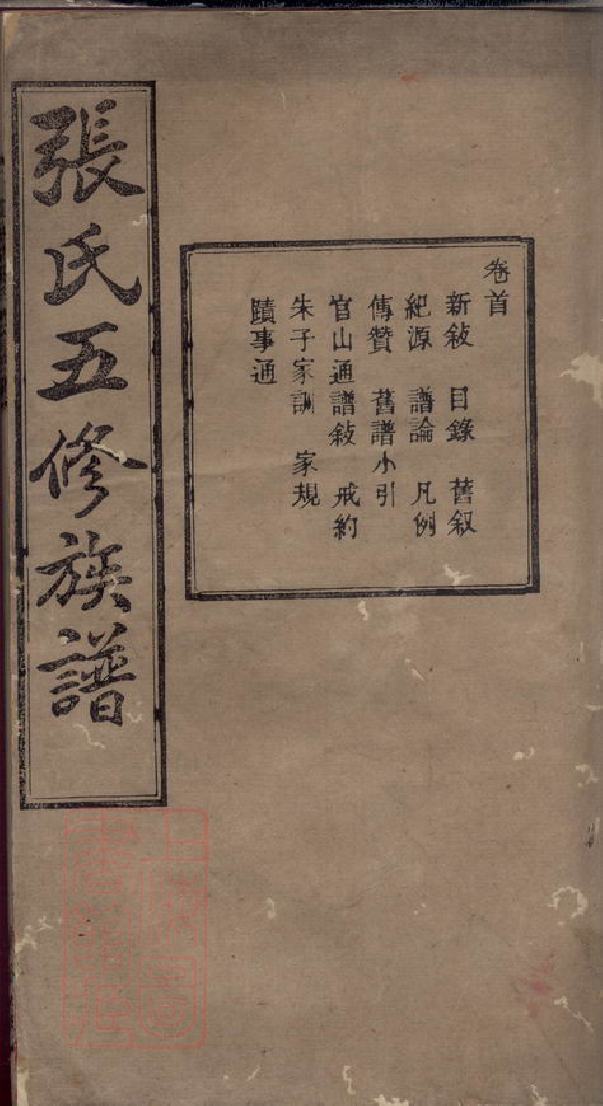 張氏五修族譜
卷首
新敍 目錄 舊叙
紀源 譜論 凡例
傳贊 舊譜小引
官山通譜敍 戒約
朱子家訓 家規
蹟事通
上海圖
書館藏